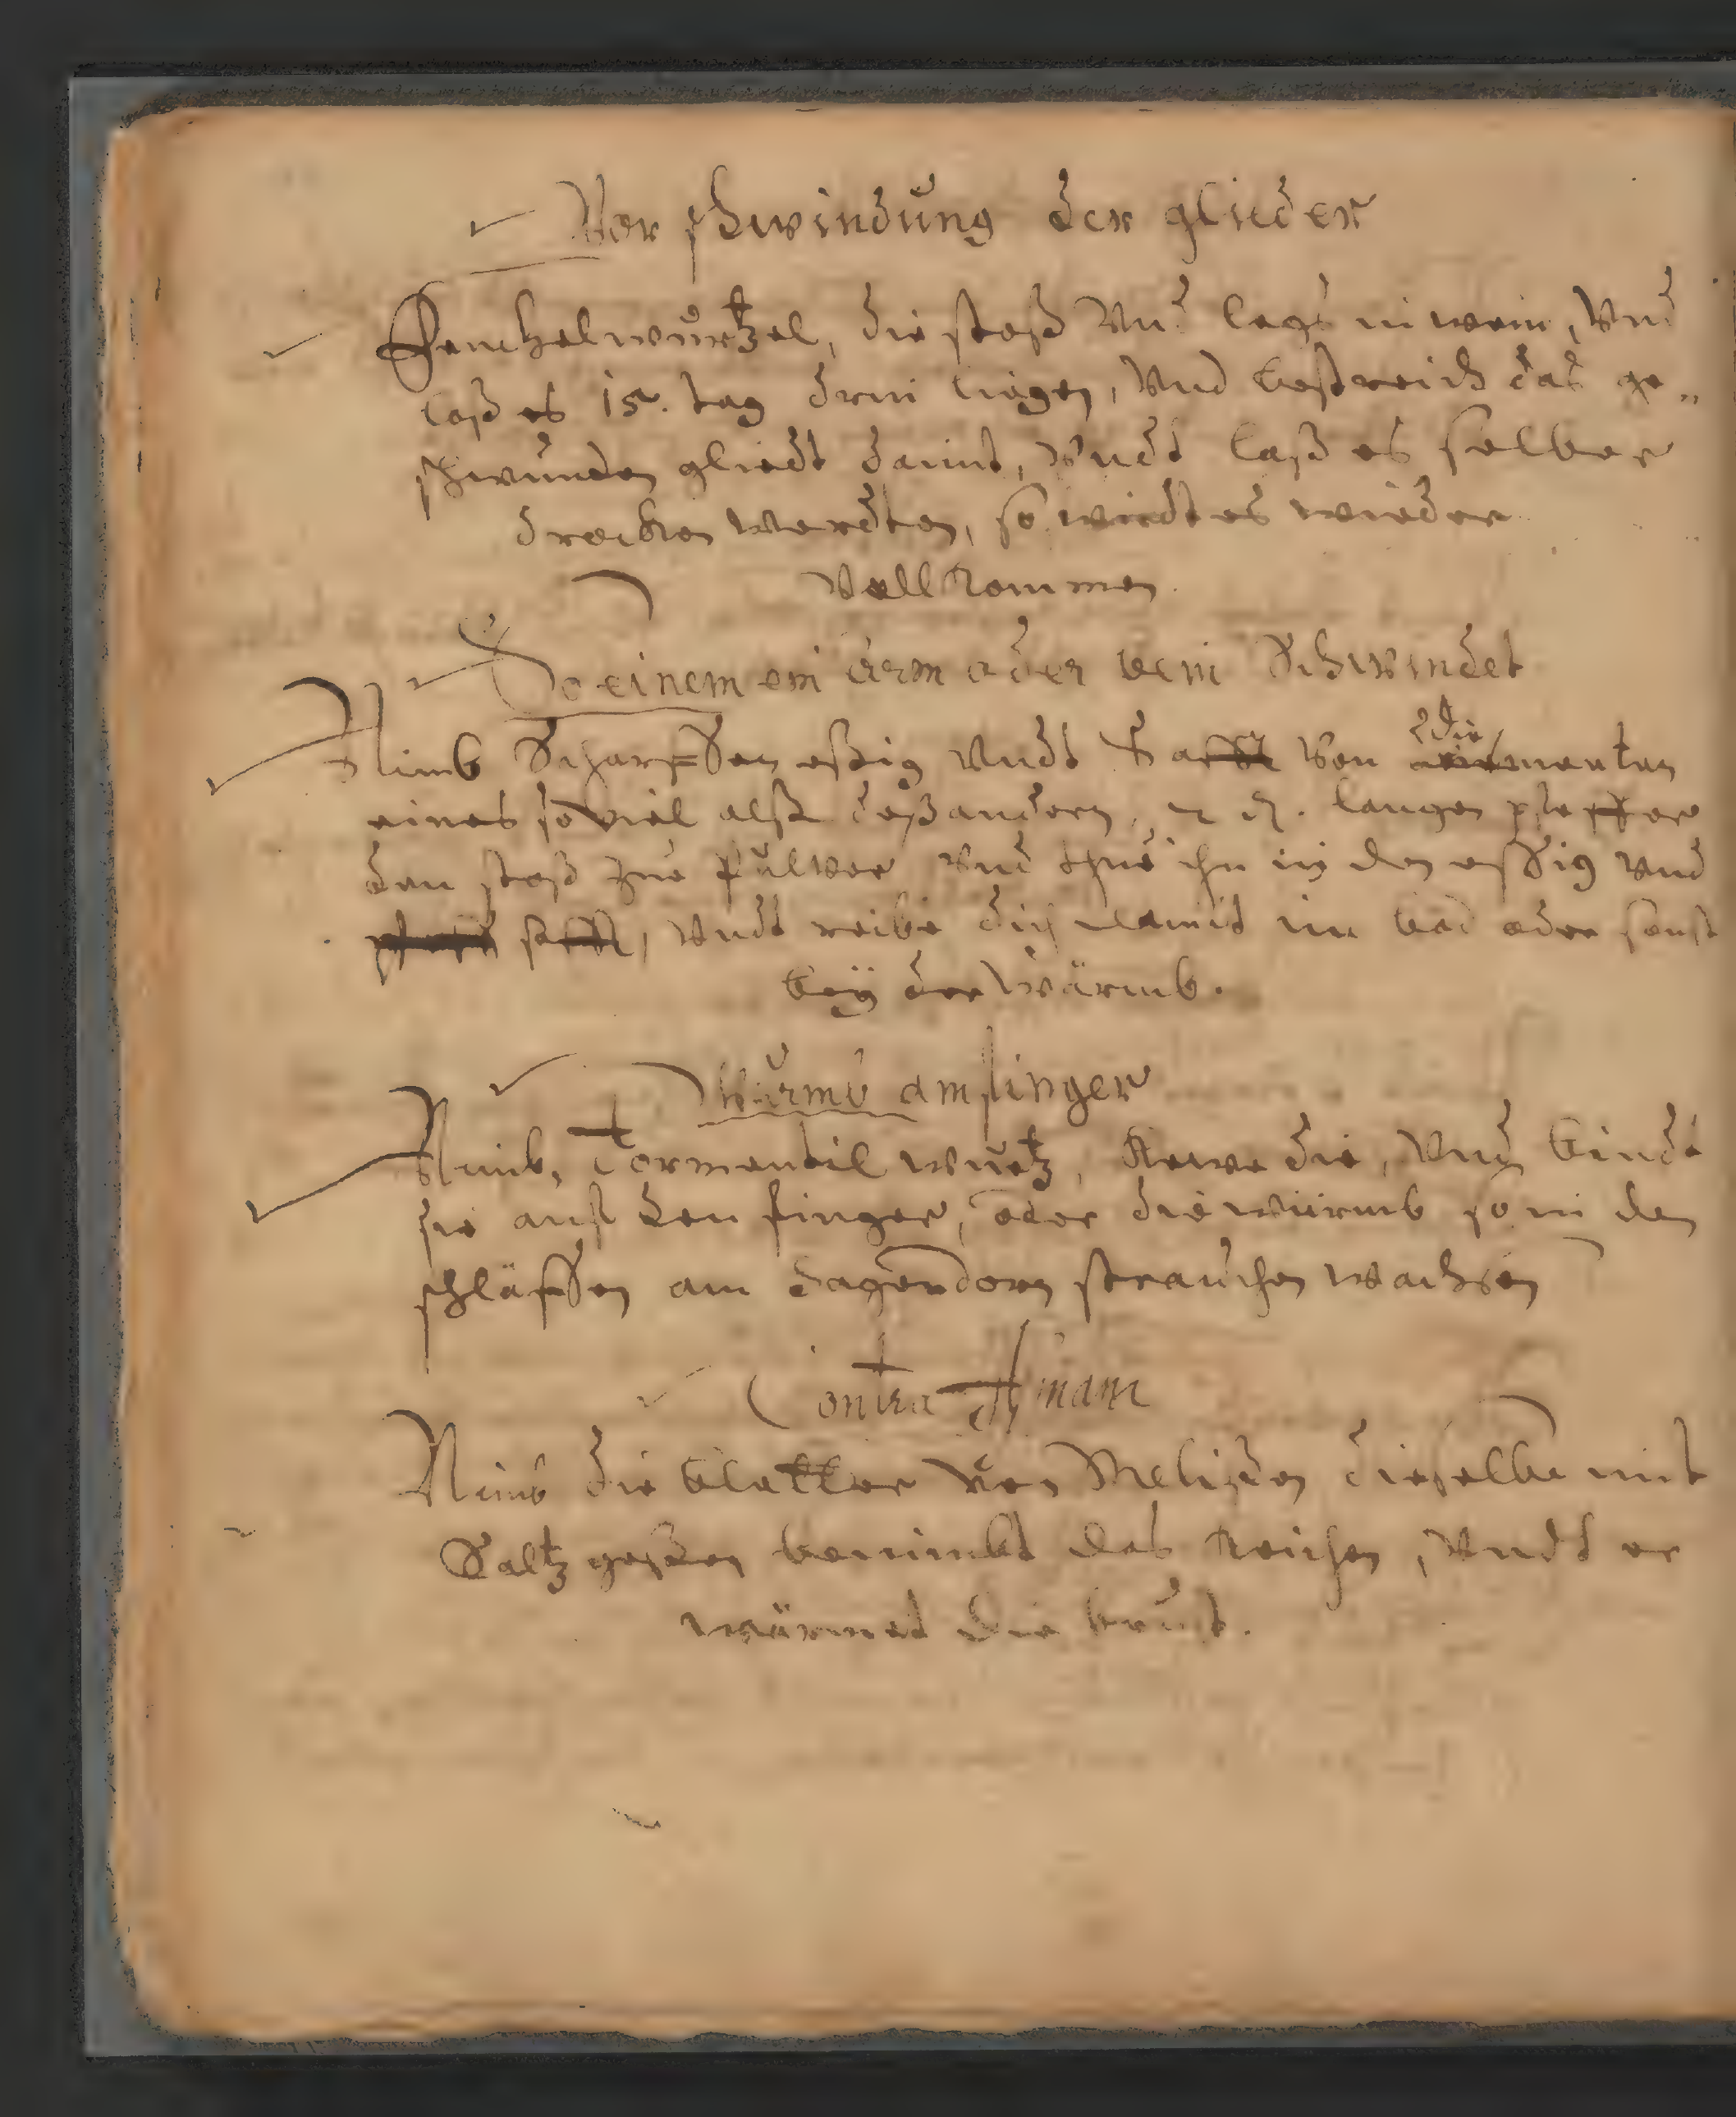 Vor schwindung der glieder
Fenchelwurtzel, die stoß Vnd legs in wein, Vnd
laß es 15. tag drin liegen, Vnd bestreich das ge„
schwunden gliedt damit, Vndt laß es selber
drocken werdten, so wirdt es wieder
Vollkommen.
So einem ein arm oder bein Schwindet
Nimb Scharpffen essig Vndt Safft Von die menten
eines so viel alß deß andern, langen pfeffer
den stoß zue pulver Vnd thue ihn in den essig Vnd
safft, Vndt reibe dich damit im bad oder sonst
bey der wärmb.
Würmb am finger
Nimb, Tormentil wurtz, Kewe die, Vnd binde
sie auff den finger, oder die würmb so in den
schläffen am hagendorn strauchen wachsen
Contra Asthmam
Nimb die bletter von Melissen dieselbe mit
Saltz gessen benimbt das Keichen, Vndt er
wärmet die brust.